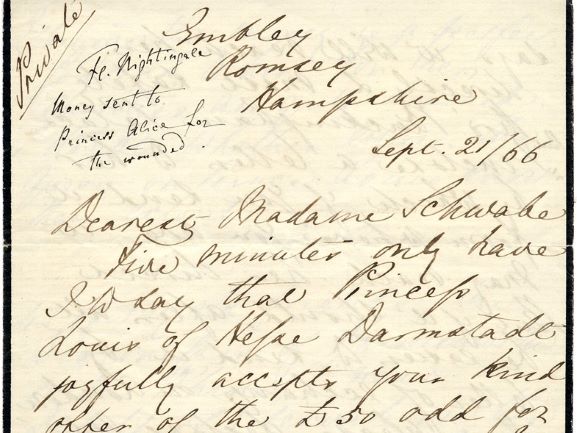 Private
Fl. Nightingale
Money sent to
Princess Alice for
the wounded.
Embley
Romsey
Hampshire
Sept. 21/66
Dearest Madame Schwabe
Five minutes only have
I to say that Princess
Louis of Hesse Darmstadt
joyfully accepts your kind
offer of the £50 odd for